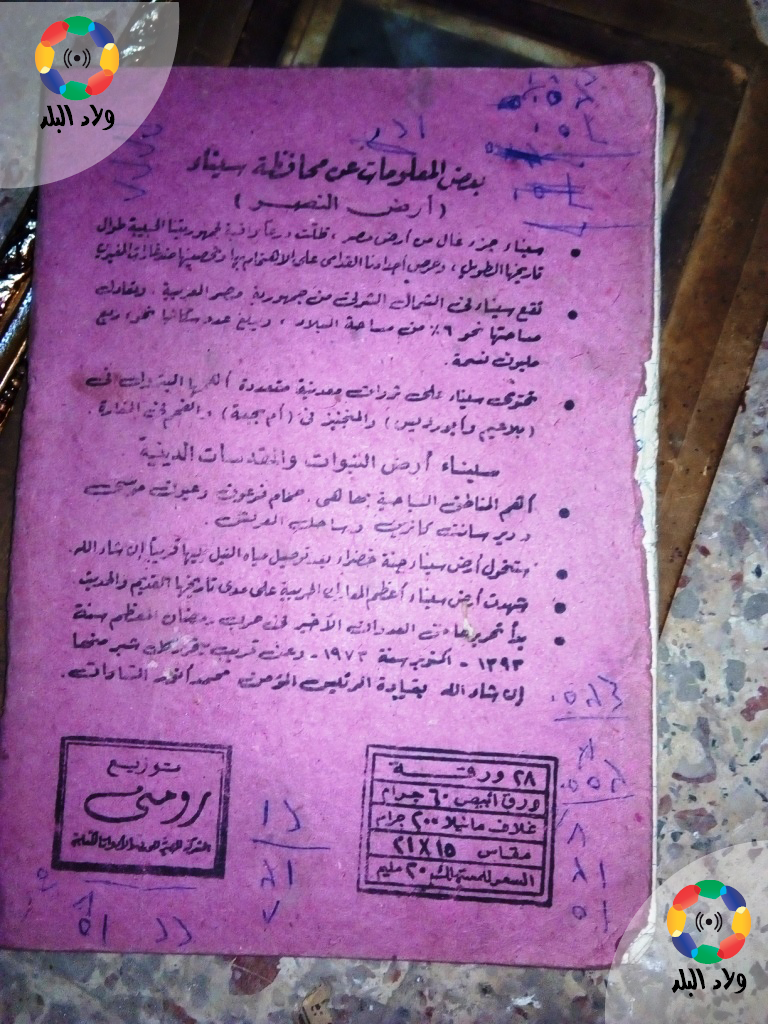 ولاد البلد
بعض المعلومات عن محافظة سيناء
( أرض النصر )
سيناء جزء غال من أرض مصر ، ظلت درعًا واقية لجمهوريتنا الحبيبة طوال
تاريخها الطويل ، وحرص أجدادنا القدامى على الاهتمام بها وتحصينها ضد غارات الغير
تقع سيناء فى الشمال الشرقى من جمهورية مصر العربية . وتعادل
مساحتها نحو ٦٪ من مساحة البلاد ، ويبلغ عدد سكانها نحو ربع
مليون نسمة .
تحتوى سيناء على ثروات معدنية متعددة أهمها البترول فى
( بلاعيم وأبورديس ) والمنجنيز فى ( أم بجمة ) والفحم فى المغارة .
سيناء أرض النبوات والمقدسات الدينية
أهم المناطق السياحية بها هى . حمام فرعون وعيون موسى
ودير سانت كاترين وساحل العريش .
ستتحول أرض سيناء جنة خضراء بعد توصيل مياه النيل إليها قريباً إن شاء الله .
شهدت أرض سيناء أعظم المعارك الحربية على مدى تاريخها القديم والحديث
بدأ تحريرها من العدوان الأخير فى حرب رمضان المعظم سنة
١٣٩٣ - أكتوبر سنة ١٩٧٣ - وعن قريب يتم كل شبر منها
إن شاء الله بقيادة الرئيس المؤمن محمد أنور السادات .
توزيع
رومنى
٢٨ ورقة
ورق أبيض ٦٠ جرام
غلاف مانيلا ٢٠٠ جرام
مقاس ١٥ X ٢١
السعر للمستهلك ٢٠ مليم
ولاد البلد